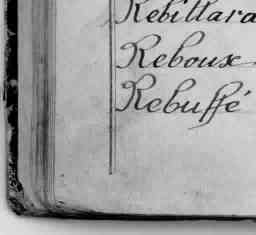 Rebillara
Reboux
Rebuffé